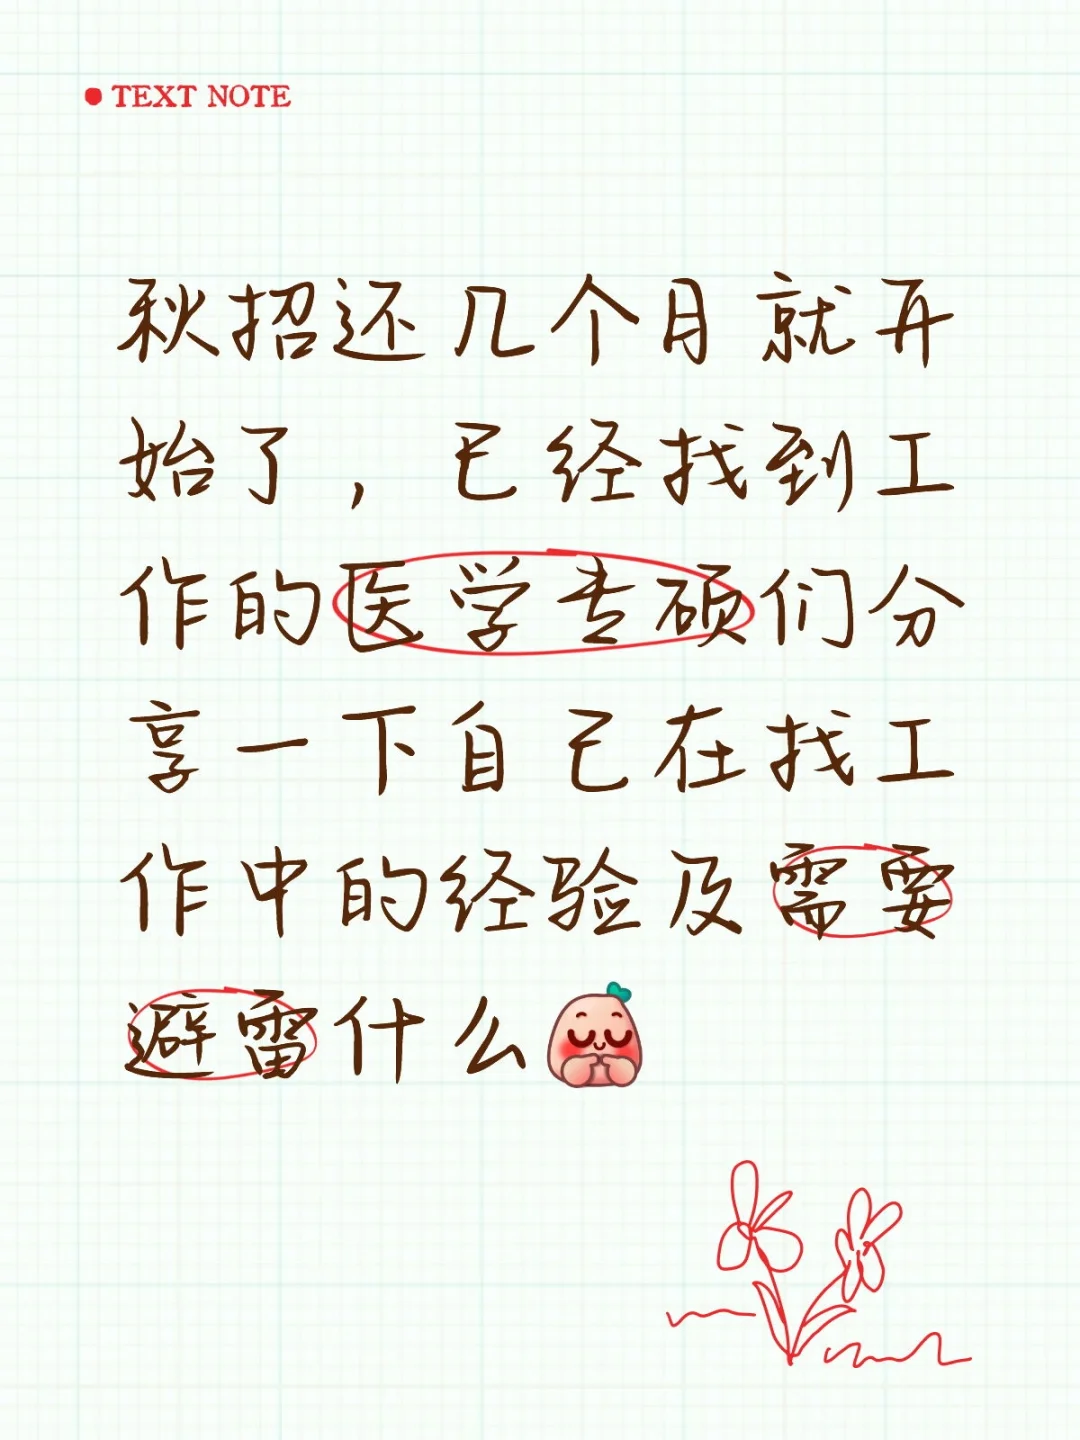 TEXT NOTE
秋招还几个月就开
始了，已经找到工
作的医学专硕们分
享一下自己在找工
作中的经验及需要
避雷什么